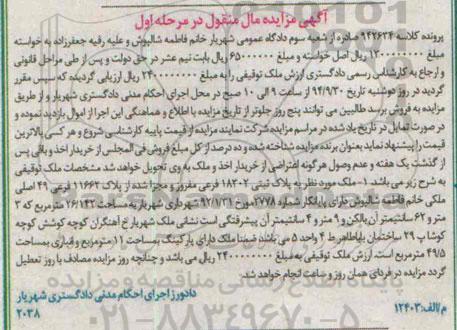 آگهی مزایده مال منقول در مرحله اول
پرونده کلاسه ۹۴۲۶۲۴ صادره از شعبه سوم دادگاه عمومی شهریار خانم فاطمه شالپوش و علیه رقیه جعفرزاده به خواسته
مبلغ ۱۳۰۰۰۰۰۰۰ ریال اصل خواسته و مبلغ ۶۵۰۰۰۰۰ ریال بابت نیم عشر در حق دولت و پس از طی مراحل قانونی
و ارجاع به کارشناس رسمی دادگستری ارزش ملک توقیفی را به مبلغ ۲۴۰۰۰۰۰۰۰۰ ریال ارزیابی گردیده که سپس مقرر
گردید در روز دوشنبه تاریخ ۹۴/۹/۳۰ از ساعت ۹ الی ۱۰ صبح در محل اجرای احکام مدنی دادگستری شهریار و از طریق
مزایده به فروش برسد طالبین می توانند پنج روز جلوتر از تاریخ مزایده با اطلاع و هماهنگی این اجرا از اموال بازدید نموده و
در صورت تمایل در تاریخ یاد شده در مراسم مزایده شرکت نمایند مزایده از قیمت پایه کارشناسی شروع و هر کسی بالاترین
قیمت را پیشنهاد نماید بعنوان برنده مزایده شناخته شده و ده درصد از کل مبلغ فروش فی المجلس از خریدار اخذ و باقی پس
از گذشت یک هفته و عدم وصول هرگونه اعتراضی از خریدار اخذ و ملک به وی تحویل خواهد شد مشخصات ملک توقیفی
به شرح زیر می باشد ۱- ملک مورد نظر به پلاک ثبتی ۱۸۳۰۲ فرعی مفروز و مجزا شده از پلاک ۱۱۶۶۲ فرعی ۴۹ اصلی
ملکی خانم فاطمه شالپوش دارای پایانکار شماره ۲۷۷۸ مورخ ۹۲/۱/۳۱ شهرداری شهریار به مساحت ۲۶۱/۴۲ مترمربع که ۳
متر و ۶۲ سانتیمتر آن بالکن و ۹ متر و ۴ سانتیمتر آن پیشرفتگی است نشانی ملک شهریار خ آهنگران کوچه کوشش کوچه
کوشا پ ۲۹ ساختمان باباطاهر ط ۴ واحد ۵ می باشد ضمنا ملک دارای پارکینگ بمساحت ۱۱ مترمربع و انباری بمساحت
۴۹/۵ مترمربع است. ارزش ملک توقیفی به مبلغ ۲۴۰۰۰۰۰۰۰۰ ریال می باشد و چنانچه روز مزایده مصادف با روز تعطیل
گردد مزایده در فردای همان روز و ساعت انجام خواهد شد.
دادورز اجرای احکام مدنی دادگستری شهریار
م/الف: ۱۲۴۰۳
۲۰۳۸
پایگاه اطلاع رسانی مناقصه و مزایده
۰۲۱-۸۸۳۴۹۶۷۰-۵